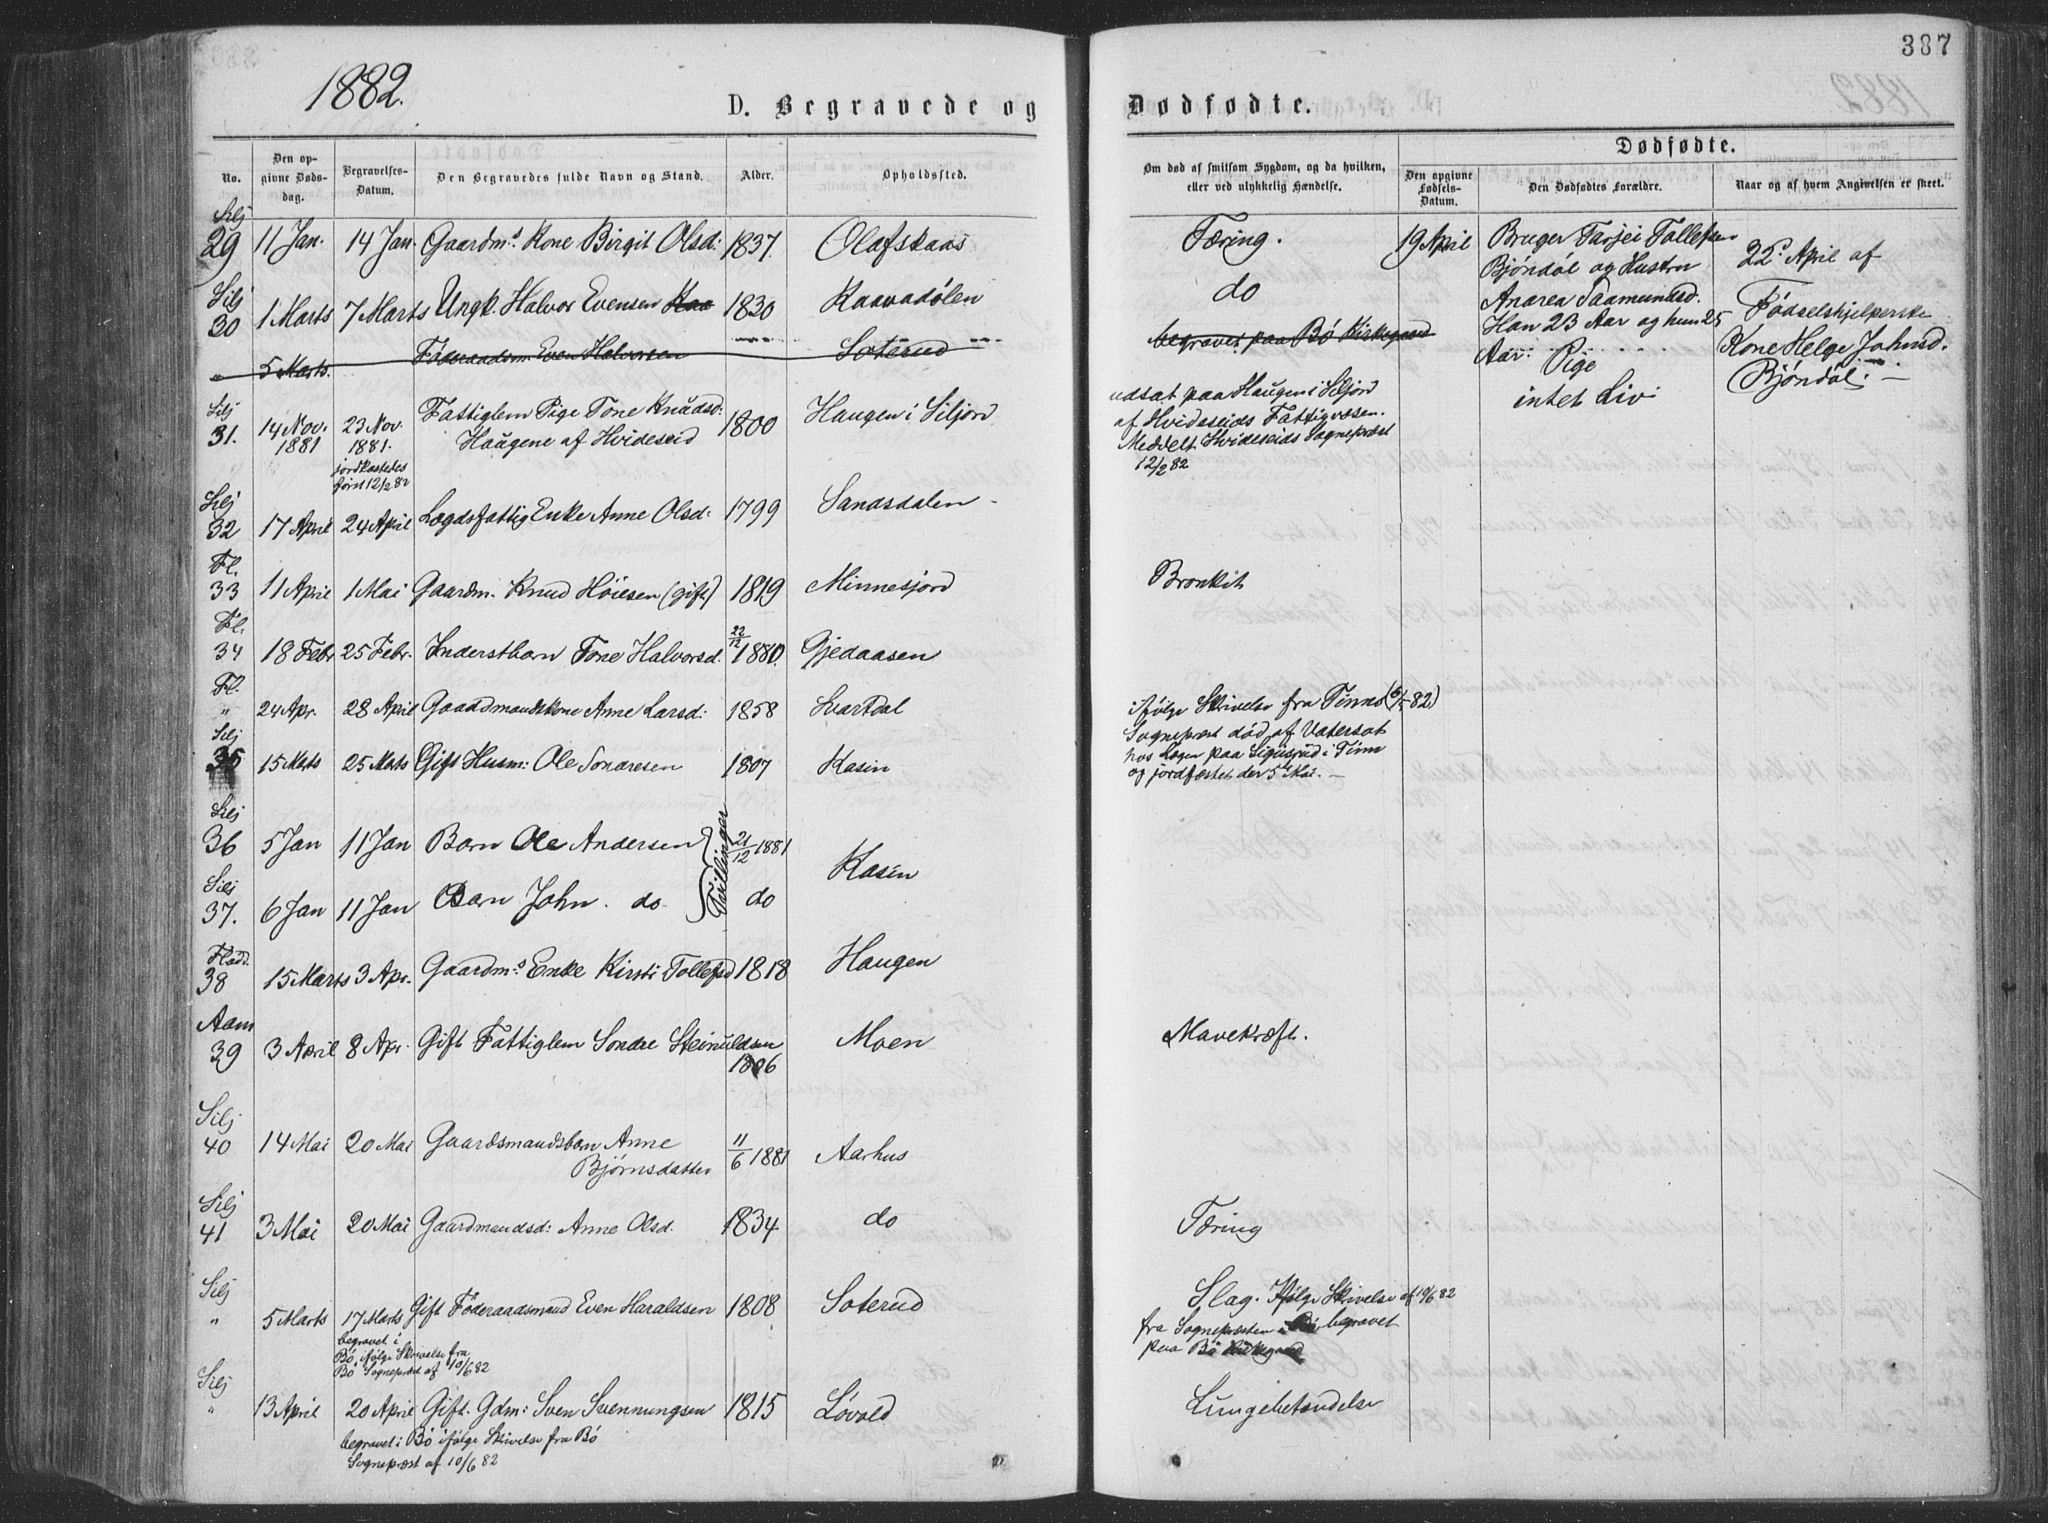 1882.
387
D. Begravede og Dødfødte.
No.
Den opgivne Dødsdag.
Begravelses-Datum.
Den Begravedes fulde Navn og Stand.
Alder.
Opholdssted.
Om død af smitsom Sygdom, og da hvilken, eller ved ulykkelig Hændelse.
Dødfødte.
Den opgivne Fødsels-Datum.
Den Dødfødtes Forældre.
Naar og af hvem Angivelsen er skeet.
Silj 29 11 Jan. 14 Jan. Gaardm.s Kone Birgit Olsd: 1837 Olafskaas Tæring.
Silj 30 1 Marts 7 Marts Ungk. Halvor Evensen Kaa 1830 Kaavadølen do
" 5 Marts. Föderaadsm Even Halvorsen Soterud begravet paa Bö Kirkegaard
19 April
Bruger Tarjei Tollefsen
Bjöndöl og Hustru
Anarea Saamundsd.
Han 23 Aar og hun 25
Aar: Pige
intet Liv.
22 April af
Födselshjelperske
Kone Helge Johnsd.
Bjöndöl. —
Silj 31. 14 Nov. 1881 23 Nov. 1881. Fattiglem Pige Tone Knudsd: 1800 Haugen i Siljord
Haugene af Hvideseid
jordkastedes
først 12/2 82
udsat paa Haugen i Siljord
af Hvideseids Fattigvæsen.
Meddelt Hvideseids Sognepræst
12/2 82
Silj 32 17 April 24 April Lægdsfattig Enke Anne Olsd: 1799 Sandsdalen
Fl. 33 11 April 1 Mai Gaardm. Knud Höiesen (gift) 1819 Minnesjord Bronkit
Fl. 34 18 Febr 25 Febr. Inderstbarn Tone Halvorsd. 22/12 1880. Gjedaasen
Fl. " 24 Apr. 28 April Gaardmandskone Anne Larsd: 1858 Svartdal
ifølge Skrivelse fra Tinns (6/5 82)
Sognepræst død af Vatersot
hos Lægen paa Sigurud i Tinn
og jordfæstet der 5 Mai. —
Silj 35 15 Mats 25 Mats Gift Husm: Ole Sondresen 1807 Kasin
Silj 36 5 Jan 11 Jan Barn Ole Andersen 21/12 1881
Tvillinger
Kasin
Silj 37. 6 Jan 11 Jan Barn John. do do
Flad. 38 15 Marts 3 Apr. Gaardm.s Enke Kirsti Tollefsd 1818 Haugen
Aam 39 3 April 8 Apr. Gift Fattiglem Sondre Steinuldsen 1806 Moen Mavekræft.
Silj 40 14 Mai 20 Mai Gaardsmandsbarn Anne
Bjørnsdatter 11/6 1881 Aarhus
Silj 41 3 Mai 20 Mai Gaardmandsd: Anne Olsd. 1834 do Tæring
Silj " 5 Marts 17 Marts Gift Föderaadsmand Even Haraldsen 1808 Soterud
begravet i
Bö, ifølge Skrivelse fra
Bö Sognepræst af 10/6 82
Slag. Ifølge Skrivelse af 10/6 82
fra Sognepræsten i Bö, begravet
paa Bö Kirkegaard
Silj " 13 April 20 April Gift. Gdm: Sven Svennungsen 1815 Lövold Lungebetændelse
begravet i Bö ifølge Skrivelse fra Bö
Sognepræst af 10/6 82